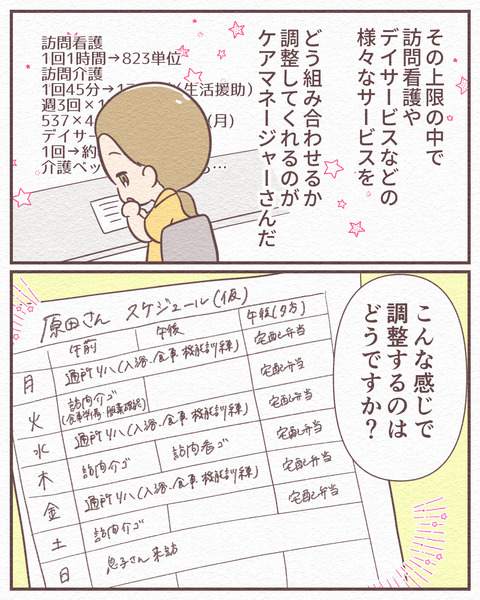 その上限の中で
訪問看護や
デイサービスなどの
様々なサービスを
どう組み合わせるか
調整してくれるのが
ケアマネージャーさんだ
訪問看護
1回1時間→823単位
訪問介護
1回45分→1
(生活援助)
週3回×1
537×4
(月)
デイサー
1回→約
介護ベッ
…
こんな感じで
調整するのは
どうですか？
原田さん スケジュール(仮)
午前 午後 午後(夕方)
月 通所リハ(入浴、食事、機能訓練) 宅配弁当
火 訪問介ゴ 宅配弁当
(食事準備・服薬確認)
水 通所リハ(入浴、食事、機能訓練) 宅配弁当
木 訪問介ゴ 訪問看ゴ 宅配弁当
金 通所リハ(入浴、食事、機能訓練) 宅配弁当
土 訪問介ゴ 宅配弁当
日 息子さん来訪